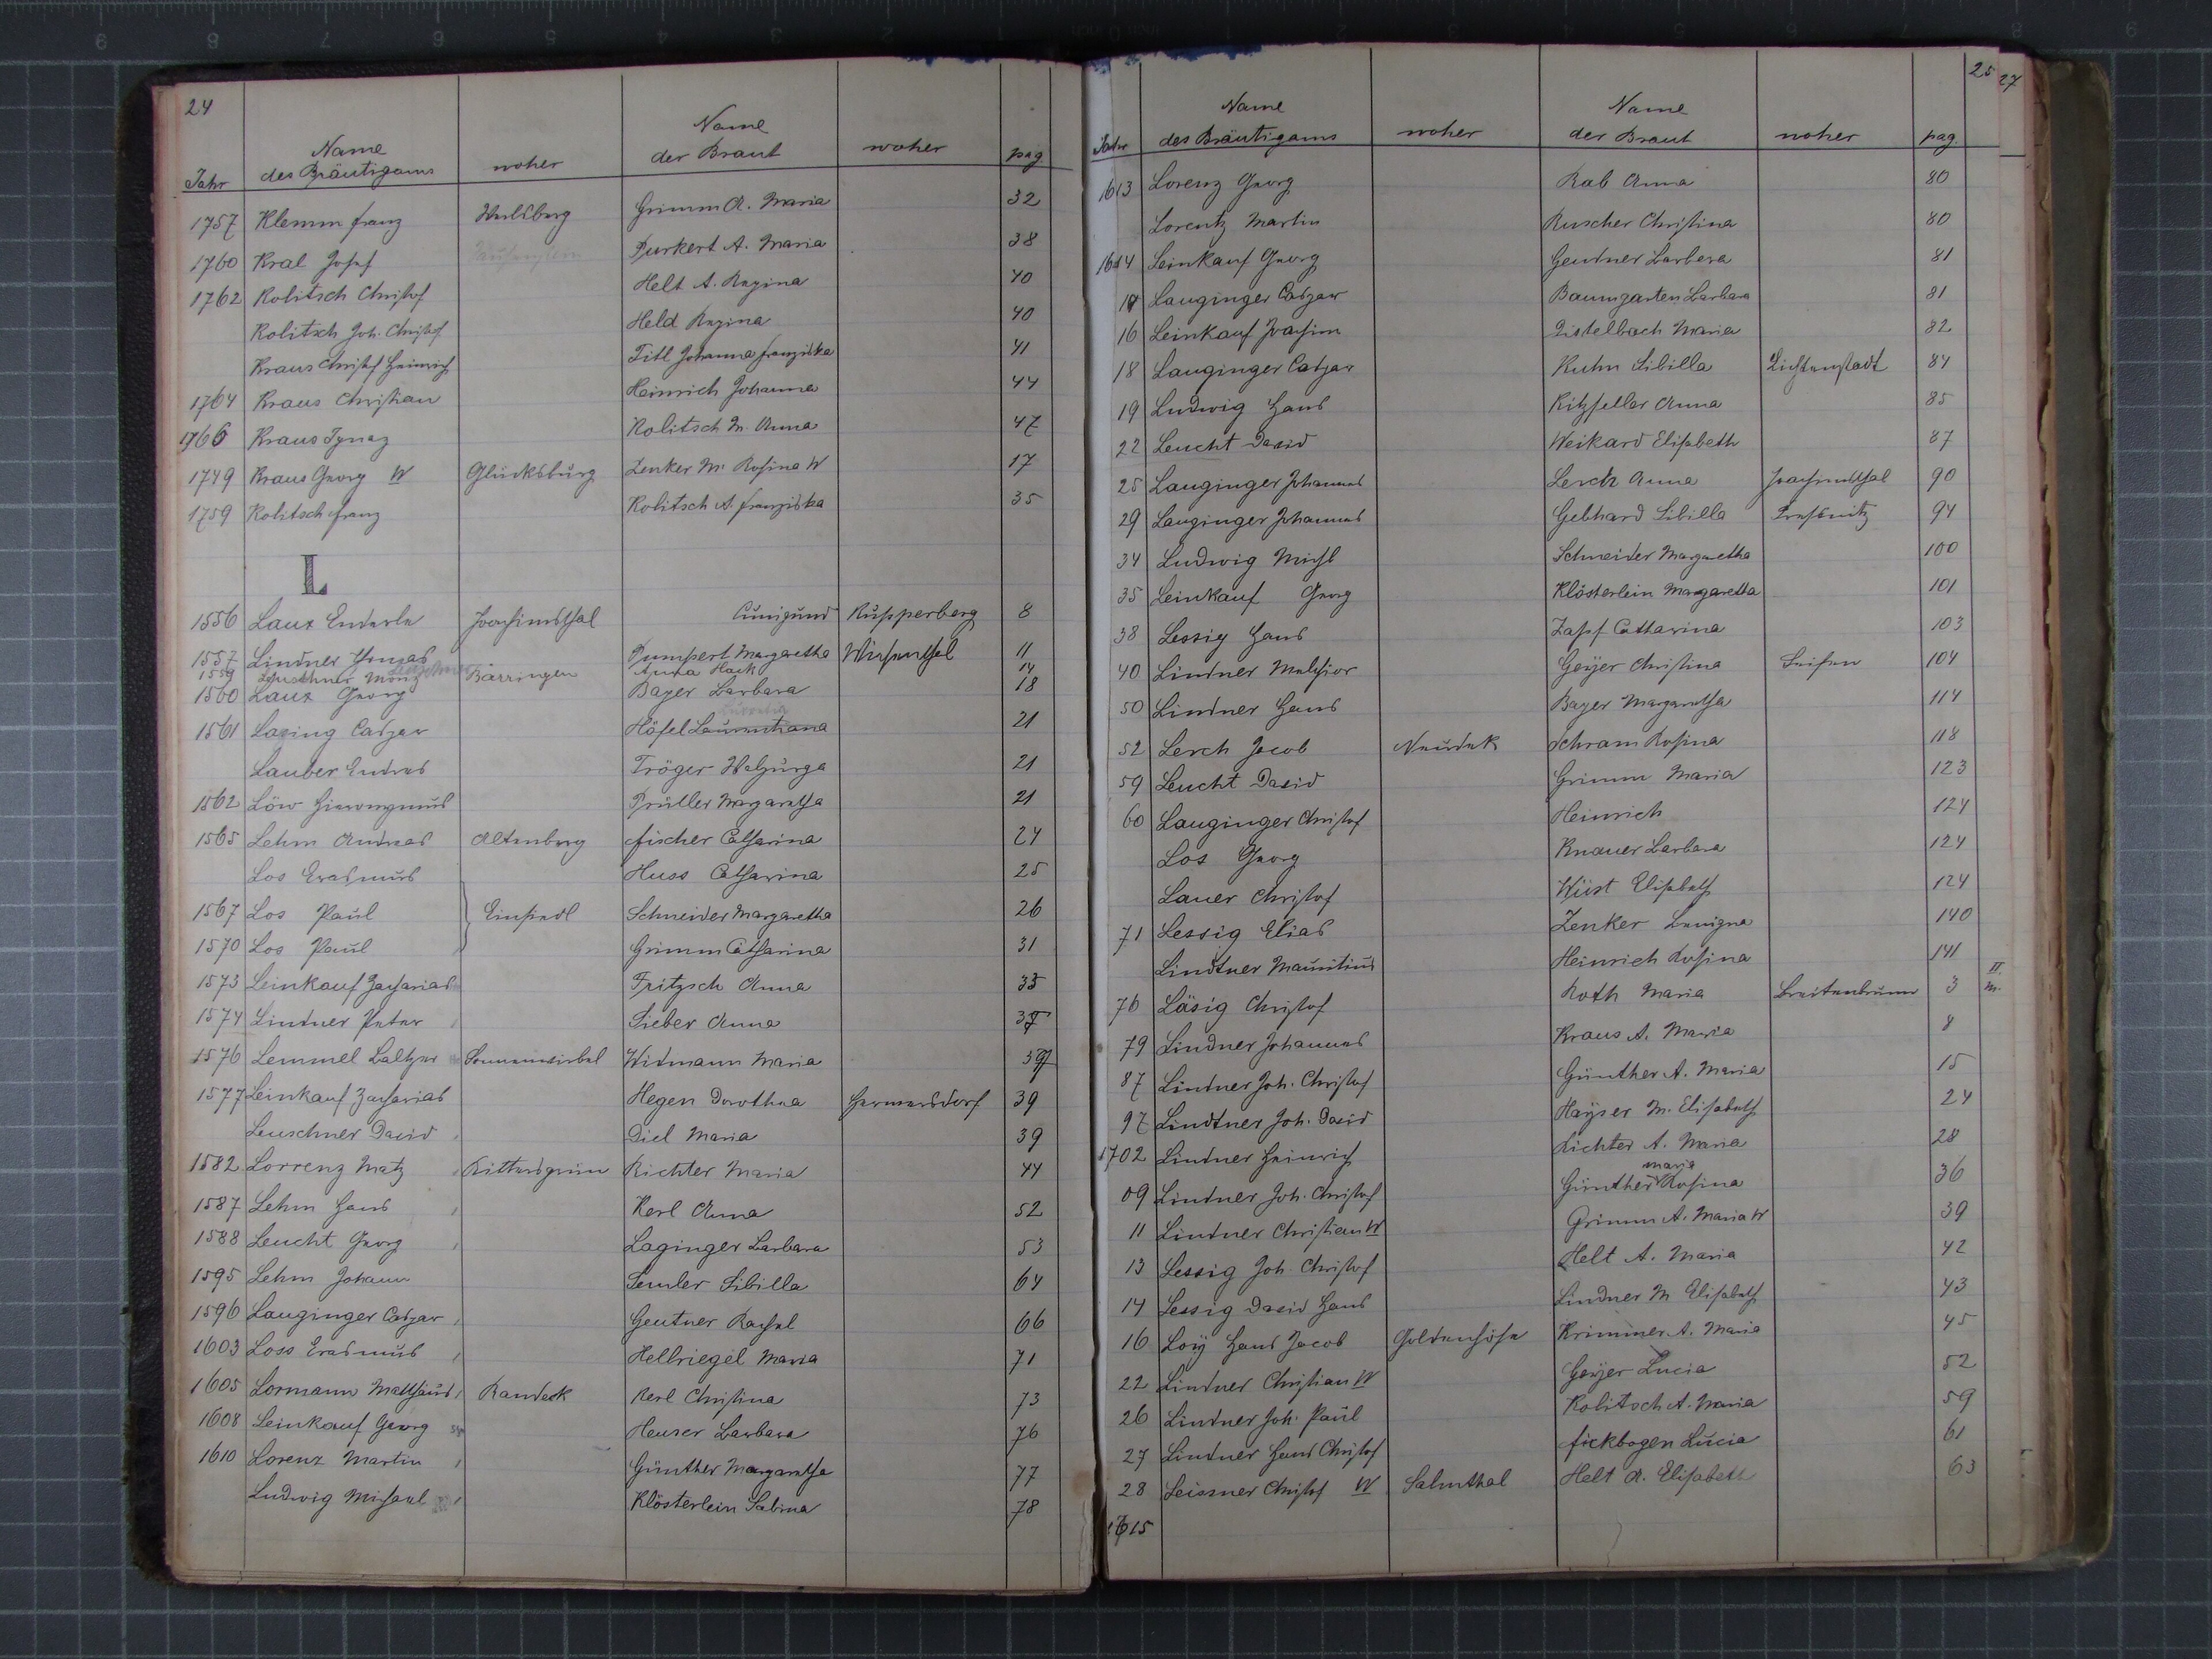 24
Jahr Name des Bräutigams woher Name der Braut woher pag
1757 Klemm Franz Grimm A. Maria 32
1760 Kral Josef Purkert A. Maria 38
1762 Kolitsch Christof Helt A. Regina 40
Kolitsch Joh. Christof Held Regina 40
Kraus Christof Heinrich Titl Johanna Franziska 41
1764 Kraus Christian Heinrich Johanna 44
1766 Kraus Ignaz Kolitsch M. Anna 47
1749 Kraus Georg W Glücksburg Zenker M. Rosina W 17
1759 Kolitsch Franz Kolitsch A. Franziska 35
L
1556 Laux Enderle Joachimsthal Cunigund Kupperberg 8
1557 Lindner Thomas Pumpert Margaretha Wiesenthal 11
1559 Leuschner Bärringen Anna Hack 14
1560 Laux Georg Bayer Barbara 18
1561 Lasing Caspar Höfel 21
Lauber Endres Tröger Walpurga 21
1562 Löw Hieronymus Prüller Margaretha 21
1565 Lehm Andreas Altenberg Fischer Catharina 24
Los Erasmus Huss Catharina 25
1567 Los Paul Einsiedl Schneider Margaretha 26
1570 Los Paul Grimm Catharina 31
1573 Leinkauf Zacharias Fritzsch Anna 35
1574 Lindner Peter Sieber Anna 37
1576 Lemmel Baltzer Sonnenwirbel Widmann Maria 39
1577 Leinkauf Zacharias Hegen Dorothea Hermersdorf 39
Leuschner David Diel Maria 39
1582 Lorrenz Matz Rittersgrün Richter Maria 44
1587 Lehm Hans Kerl Anna 52
1588 Leucht Georg Laginger Barbara 53
1595 Lehm Johann Semler Sibilla 64
1596 Lauginger Caspar Geutner Rachel 66
1603 Loss Erasmus Hellriegel Maria 71
1605 Lormann Matthäus Randeck Kerl Christina 73
1608 Leinkauf Georg Heuser Barbara 76
1610 Lorenz Martin Günther Margaretha 77
Ludwig Michael Klösterlein Sabina 78
25 27
Jahr Name des Bräutigams woher Name der Braut woher pag.
1613 Lorenz Georg Rab Anna 80
Lorentz Martin Ruscher Christina 80
1614 Leinkauf Georg Geutner Barbara 81
Lauginger Caspar Baumgarten Barbara 81
16 Leinkauf Joachim Distelbach Maria 82
18 Lauginger Caspar Kuhn Sibilla Lichtenstadt 84
19 Ludwig Hans Kitzfeller Anna 85
22 Leucht David Weikard Elisabeth 87
25 Lauginger Johannes Lerch Anna Joachimsthal 90
29 Lauginger Johannes Gebhard Sibilla Pressnitz 94
34 Ludwig Michl Schneider Margaretha 100
35 Leinkauf Georg Klösterlein Margaretha 101
38 Lessig Hans Zapf Catharina 103
40 Lindner Melchior Geÿer Christina Seifen 104
50 Lindner Hans Bayer Margaretha 114
52 Lerch Jacob Neudek Schram Rosina 118
59 Leucht David Grimm Maria 123
60 Lauginger Christof Heinrich 124
Los Georg Knauer Barbara 124
Lauer Christof Wüst Elisabeth 124
71 Lessig Elias Zenker Benigna 140
Lindtner Mauritius Heinrich Rosina 141
76 Läsig Christof Roth Maria Breitenbrunn 3 II. m.
79 Lindner Johannes Kraus A. Maria 8
87 Lindner Joh. Christof Günther A. Maria 15
97 Lindtner Joh. David Haÿser M. Elisabeth 24
1702 Lindner Heinrich Richter A. Maria 28
09 Lindner Joh. Christof Günther Maria Rosina 36
11 Lindner Christian W Grimm A. Maria W 39
13 Lessig Joh. Christof Helt A. Maria 42
14 Lessig David Hans Lindner M Elisabeth 43
16 Loÿ Hans Jacob Goldenhöhe Krimmer A. Maria 45
22 Lindner Christian W Geÿer Lucia 52
26 Lindner Joh. Paul Kolitsch A. Maria 59
27 Lindner Hans Christof Fickbogen Lucia 61
28 Leissner Christof W Salmthal Helt A. Elisabeth 63
1615